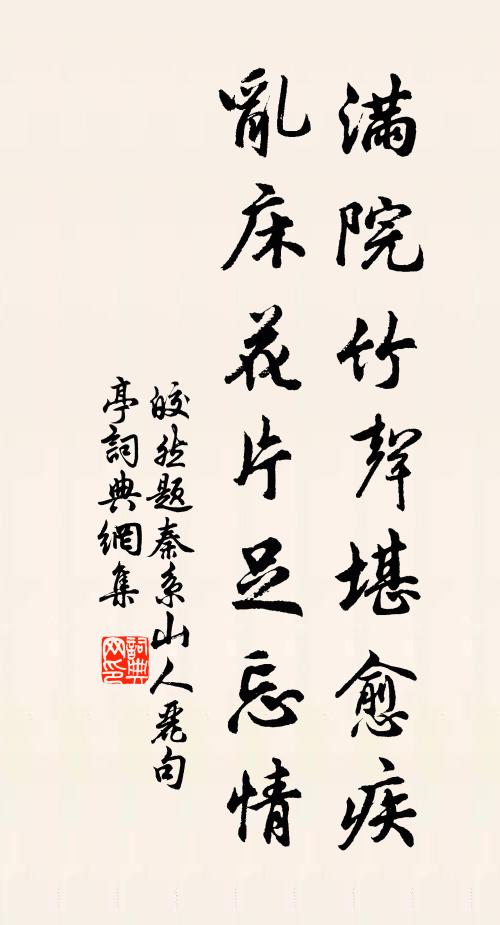 滿院竹聲堪愈疾
亂床花片足忘情
皎然題秦系山人麗句
亭詞典網集
詞典
网印